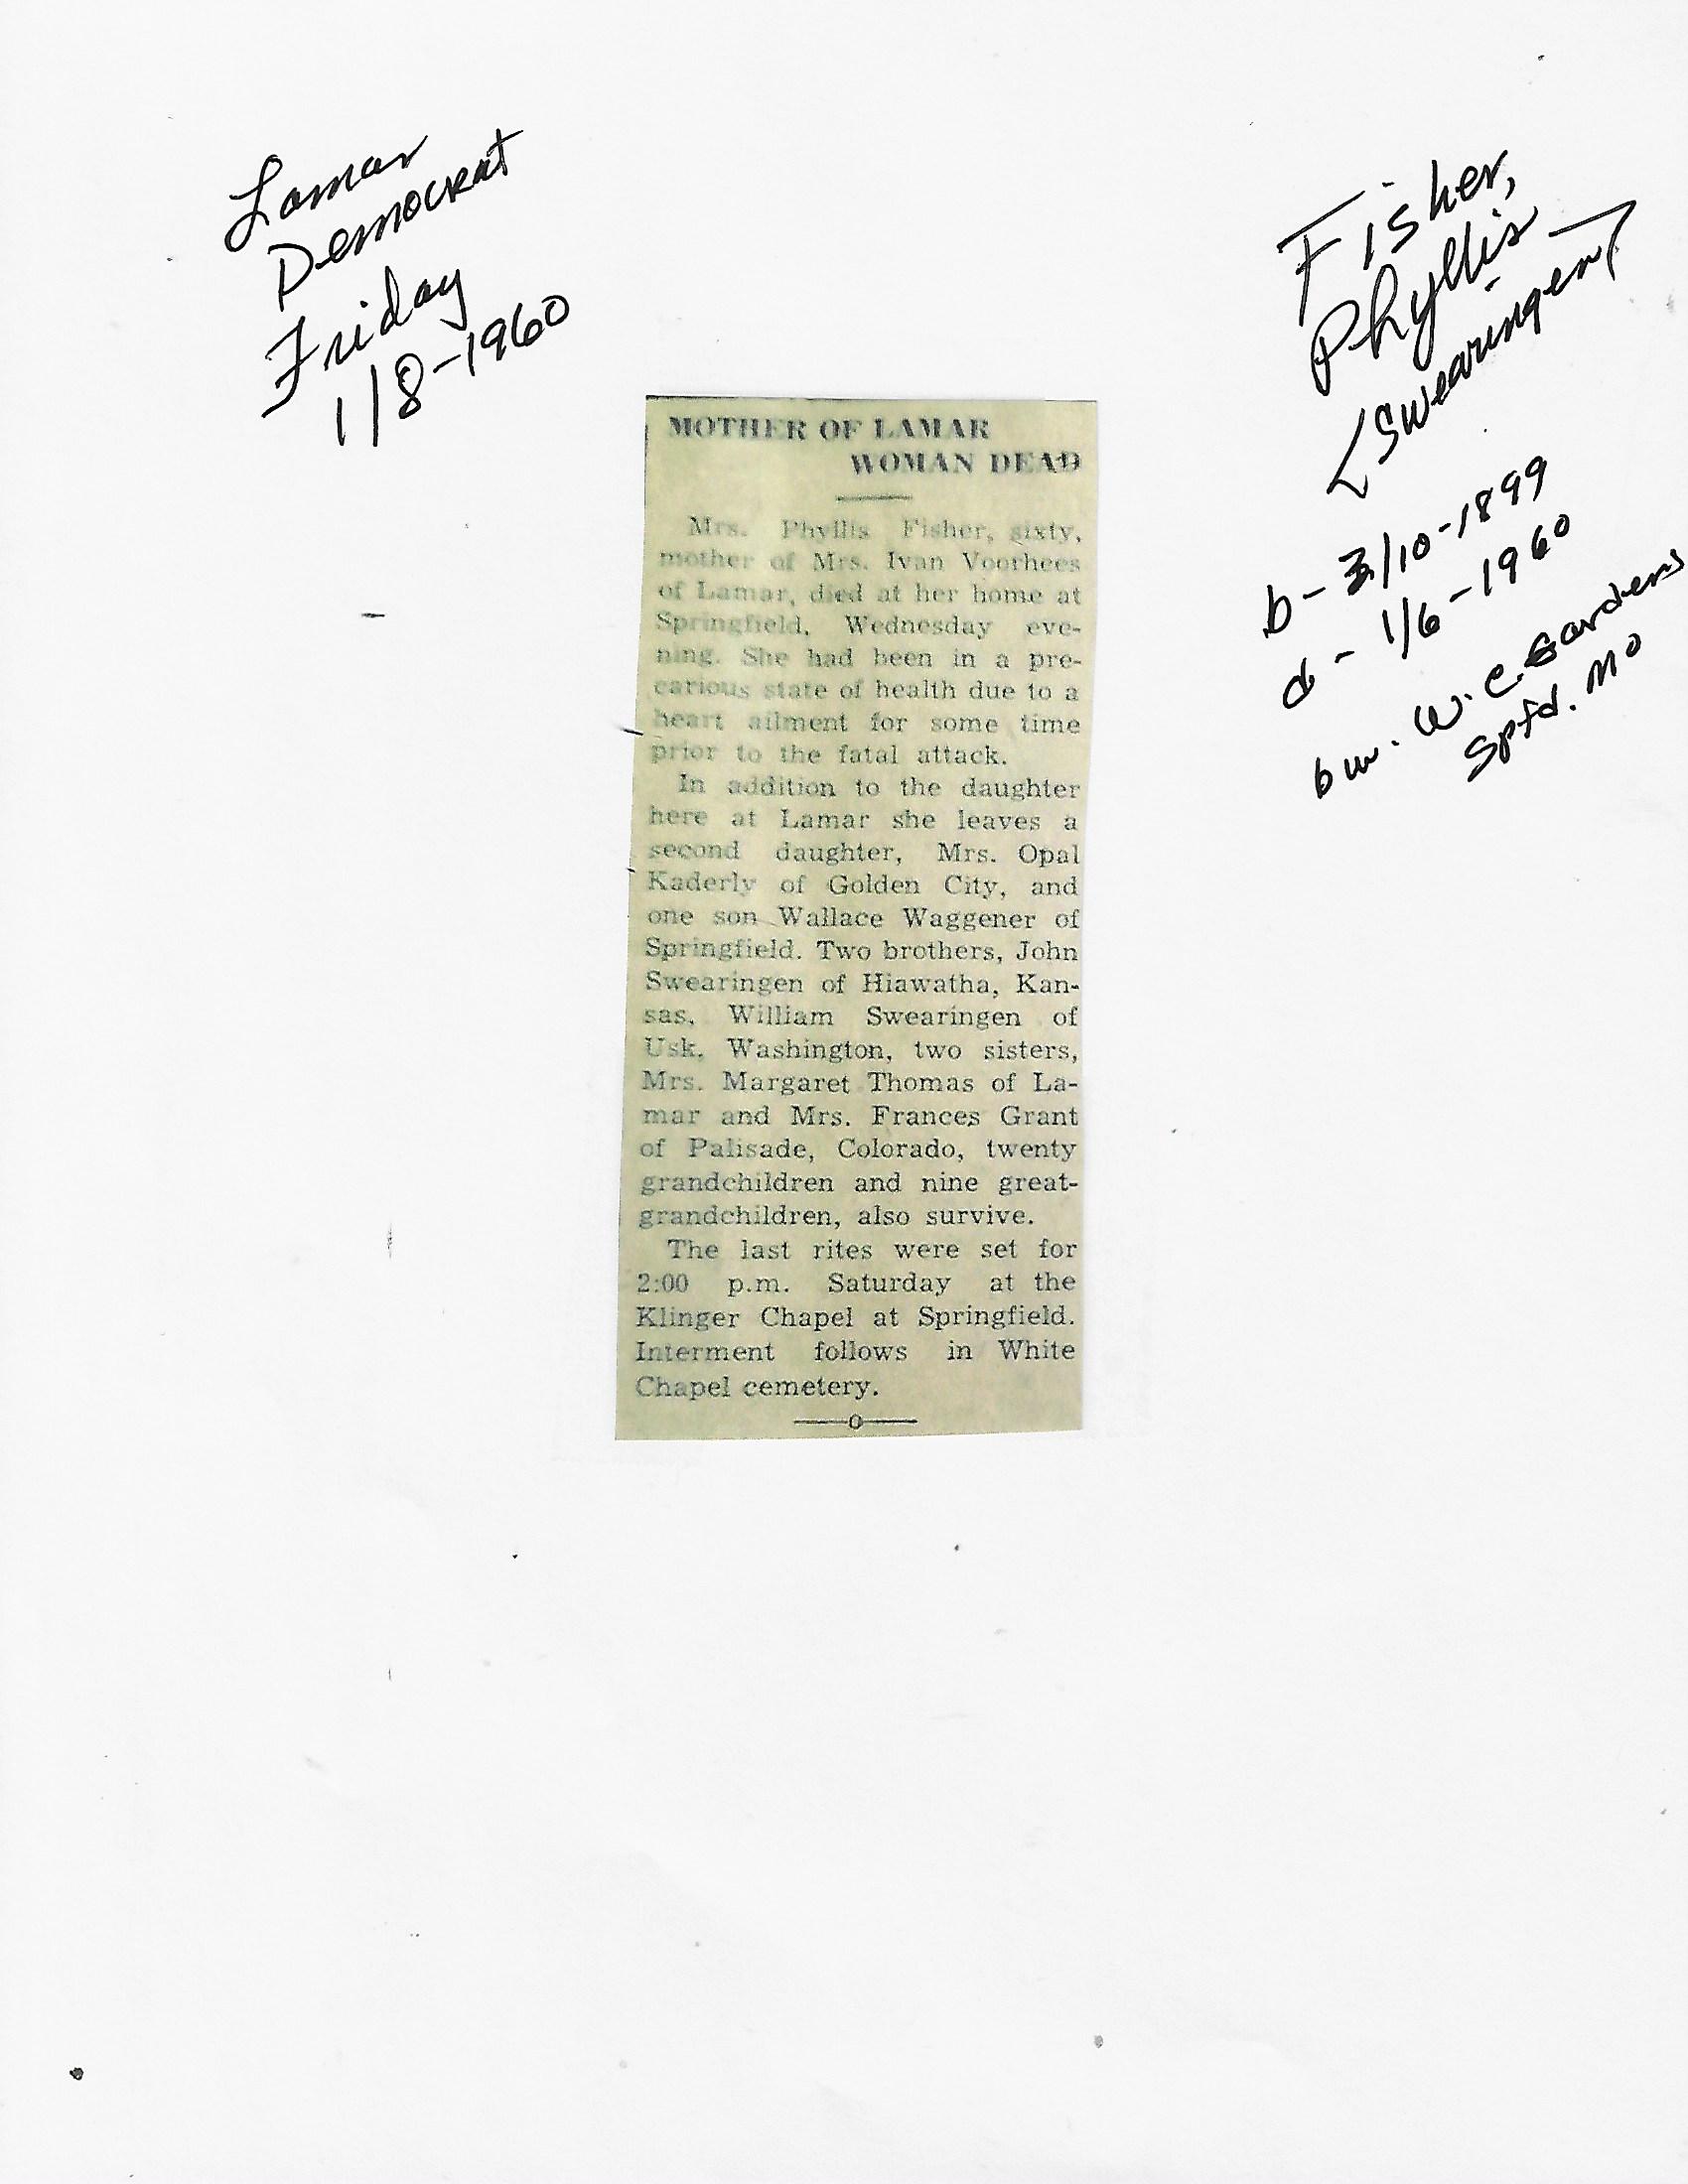 Lamar
Democrat
Friday
1/8-1960
Fisher,
Phyllis
[Swearingen]
b- 3/10-1899
d- 1/6-1960
bur. W.C. Gardens
Spfd. Mo
MOTHER OF LAMAR
WOMAN DEAD
Mrs. Phyllis Fisher, sixty,
mother of Mrs. Ivan Voorhees
of Lamar, died at her home at
Springfield, Wednesday eve-
ning. She had been in a pre-
carious state of health due to a
heart ailment for some time
prior to the fatal attack.
In addition to the daughter
here at Lamar she leaves a
second daughter, Mrs. Opal
Kaderly of Golden City, and
one son Wallace Waggener of
Springfield. Two brothers, John
Swearingen of Hiawatha, Kan-
sas, William Swearingen of
Usk, Washington, two sisters,
Mrs. Margaret Thomas of La-
mar and Mrs. Frances Grant
of Palisade, Colorado, twenty
grandchildren and nine great-
grandchildren, also survive.
The last rites were set for
2:00 p.m. Saturday at the
Klinger Chapel at Springfield.
Interment follows in White
Chapel cemetery.